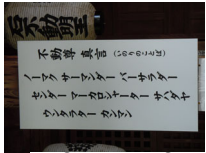 石不動明王
不動尊 真言（いのりのことば）
ノーマク サーマンダー バーサラダー
センダー マーカロシャーダー サバタヤ
ウンタラター カンマン